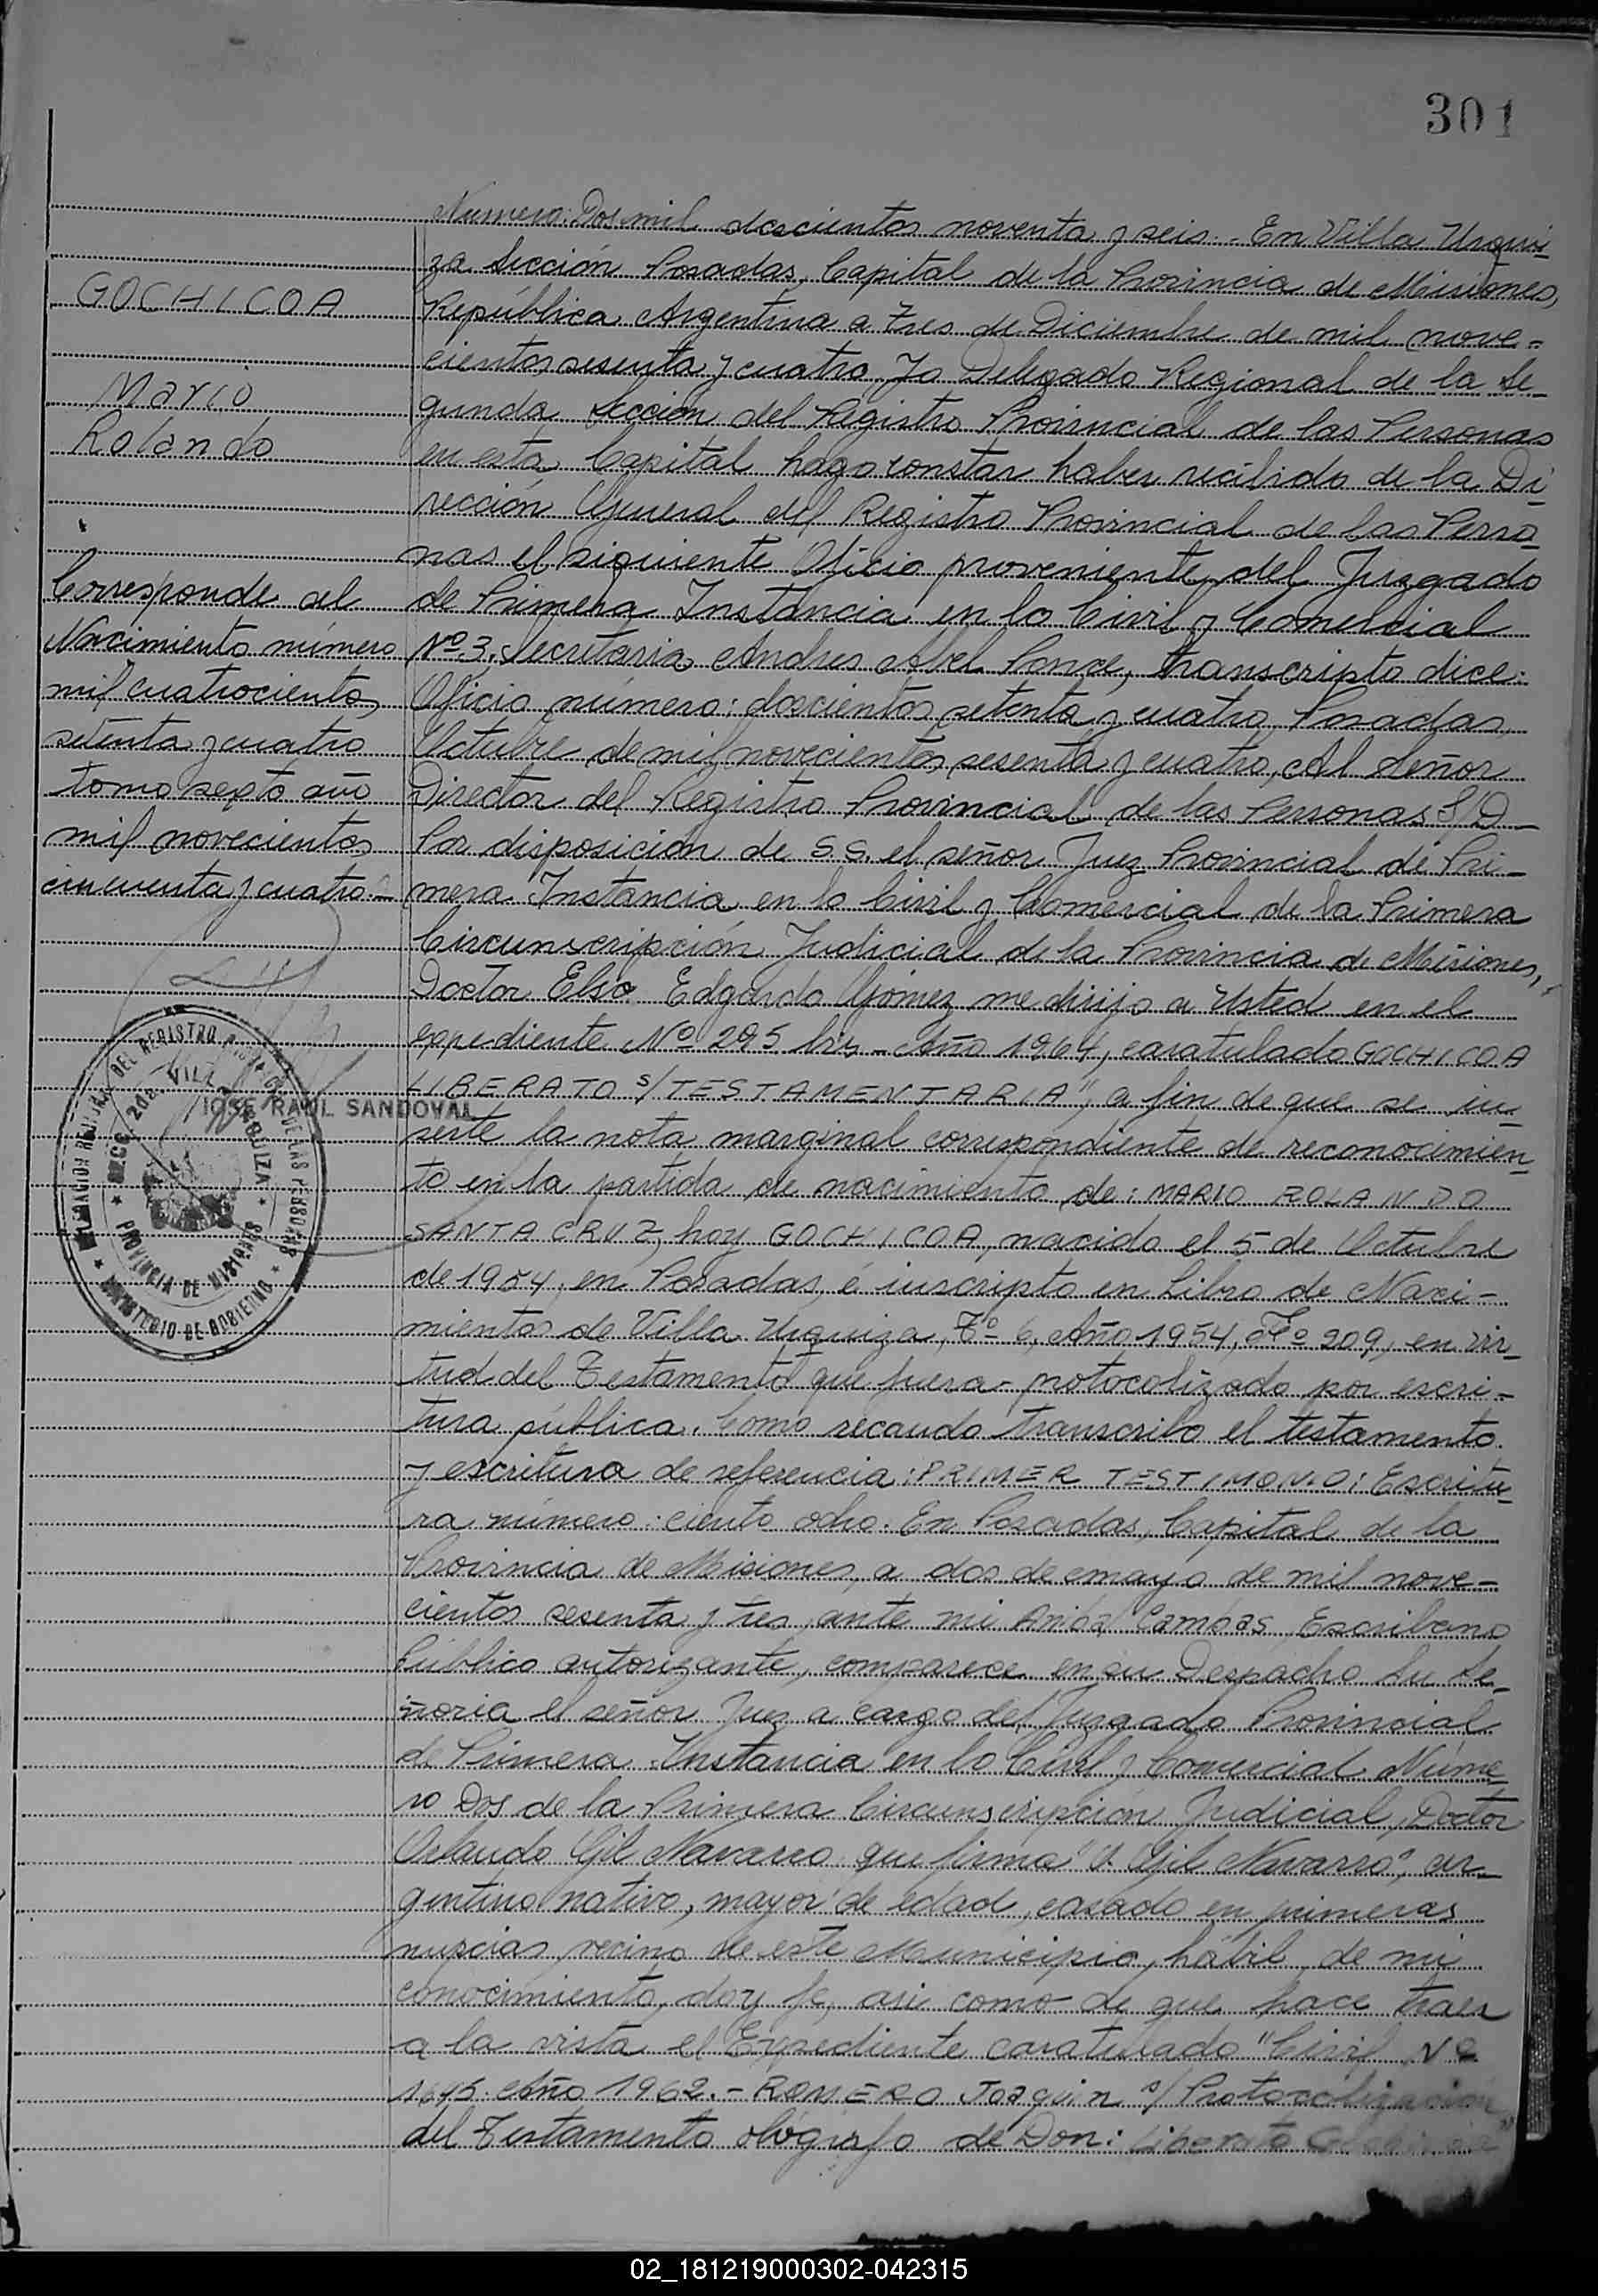 301
GOCHICOA
Mario
Rolando
Corresponde al
Nacimiento número
mil cuatrocientos
setenta y cuatro
tomo sexto año
mil novecientos
cincuenta y cuatro.-
JOSE RAUL SANDOVAL
DEL REGISTRO DE LAS PERSONAS
SECC. 2da. VILLA URQUIZA
PROVINCIA DE MISIONES
MINISTERIO DE GOBIERNO
Número: Dos mil doscientos noventa y seis.- En Villa Urqui-
za Sección Posadas, Capital de la Provincia de Misiones,
República Argentina a tres de Diciembre de mil nove-
cientos sesenta y cuatro. Yo Delegado Regional de la Se-
gunda Sección del Registro Provincial de las Personas
en esta Capital hago constar haber recibido de la Di-
rección General del Registro Provincial de las Perso-
nas el siguiente Oficio proveniente del Juzgado
de Primera Instancia en lo Civil y Comercial
Nº 3. Secretaria Andres Abel Ponce, transcripto dice:
Oficio número: doscientos setenta y cuatro. Posadas,
Octubre de mil novecientos sesenta y cuatro, Al Señor
Director del Registro Provincial de las Personas S/D-
Por disposición de S.S. el señor Juez Provincial de Pri-
mera Instancia en lo Civil y Comercial de la Primera
Circunscripción Judicial de la Provincia de Misiones,
Doctor Elso Edgardo Gómez me dirijo a Usted en el
expediente Nº 295 bis - Año 1964, caratulado GOCHICOA
LIBERATO s/TESTAMENTARIA", a fin de que se in-
serte la nota marginal correspondiente de reconocimien-
to en la partida de nacimiento de: MARIO ROLANDO
SANTA CRUZ, hoy GOCHICOA, nacido el 5 de Octubre
de 1954, en Posadas, é inscripto en Libro de Naci-
mientos de Villa Urquiza, Tº 6, Año 1954, Fº 209, en vir-
tud del Testamento que fuera- protocolizado por escri-
tura pública. Como recaudo transcribo el testamento
y escritura de referencia: PRIMER TESTIMONIO: Escritu-
ra número: ciento ocho. En Posadas, Capital de la
Provincia de Misiones, a dos de mayo de mil nove-
cientos sesenta y tres, ante mi Anibal Cambas, Escribano
Público autorizante, comparece en su Despacho Su Se-
ñoria el señor Juez a cargo del Juzgado Provincial
de Primera Instancia en lo Civil y Comercial Núme-
ro Dos de la Primera Circunscripción Judicial, Doctor
Orlando Gil Navarro que firma "O. Gil Navarro", ar-
gentino nativo, mayor de edad, casado en primeras
nupcias, vecino de este Municipio, hábil, de mi
conocimiento, doy fe, asi como de que hace traer
a la vista el Expediente caratulado "Civil Nº
Año 1962.- ROMERO Joaquin s/ Protocolización
del Testamento ológrafo de Don: Liberato Gochicoa"
02_181219000302-042315